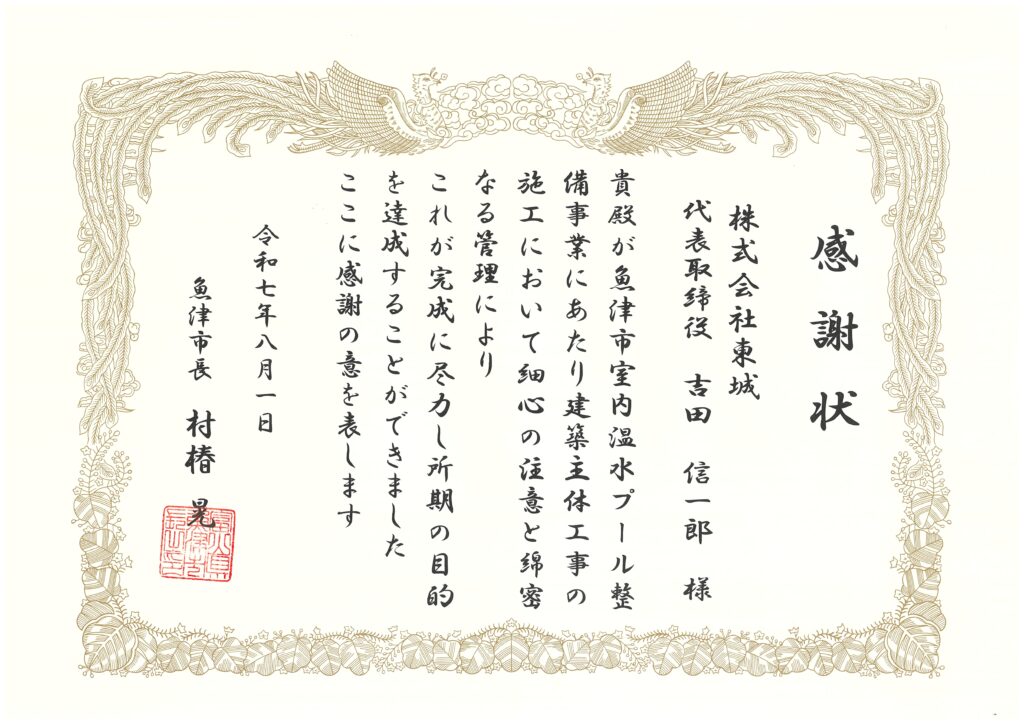 感謝状
株式会社東城
代表取締役 吉田 信一郎 様
貴殿が魚津市室内温水プール整
備事業にあたり建築主体工事の
施工において細心の注意と綿密
なる管理により
これが完成に尽力し所期の目的
を達成することができました
ここに感謝の意を表します
令和七年八月一日
魚津市長 村椿 晃